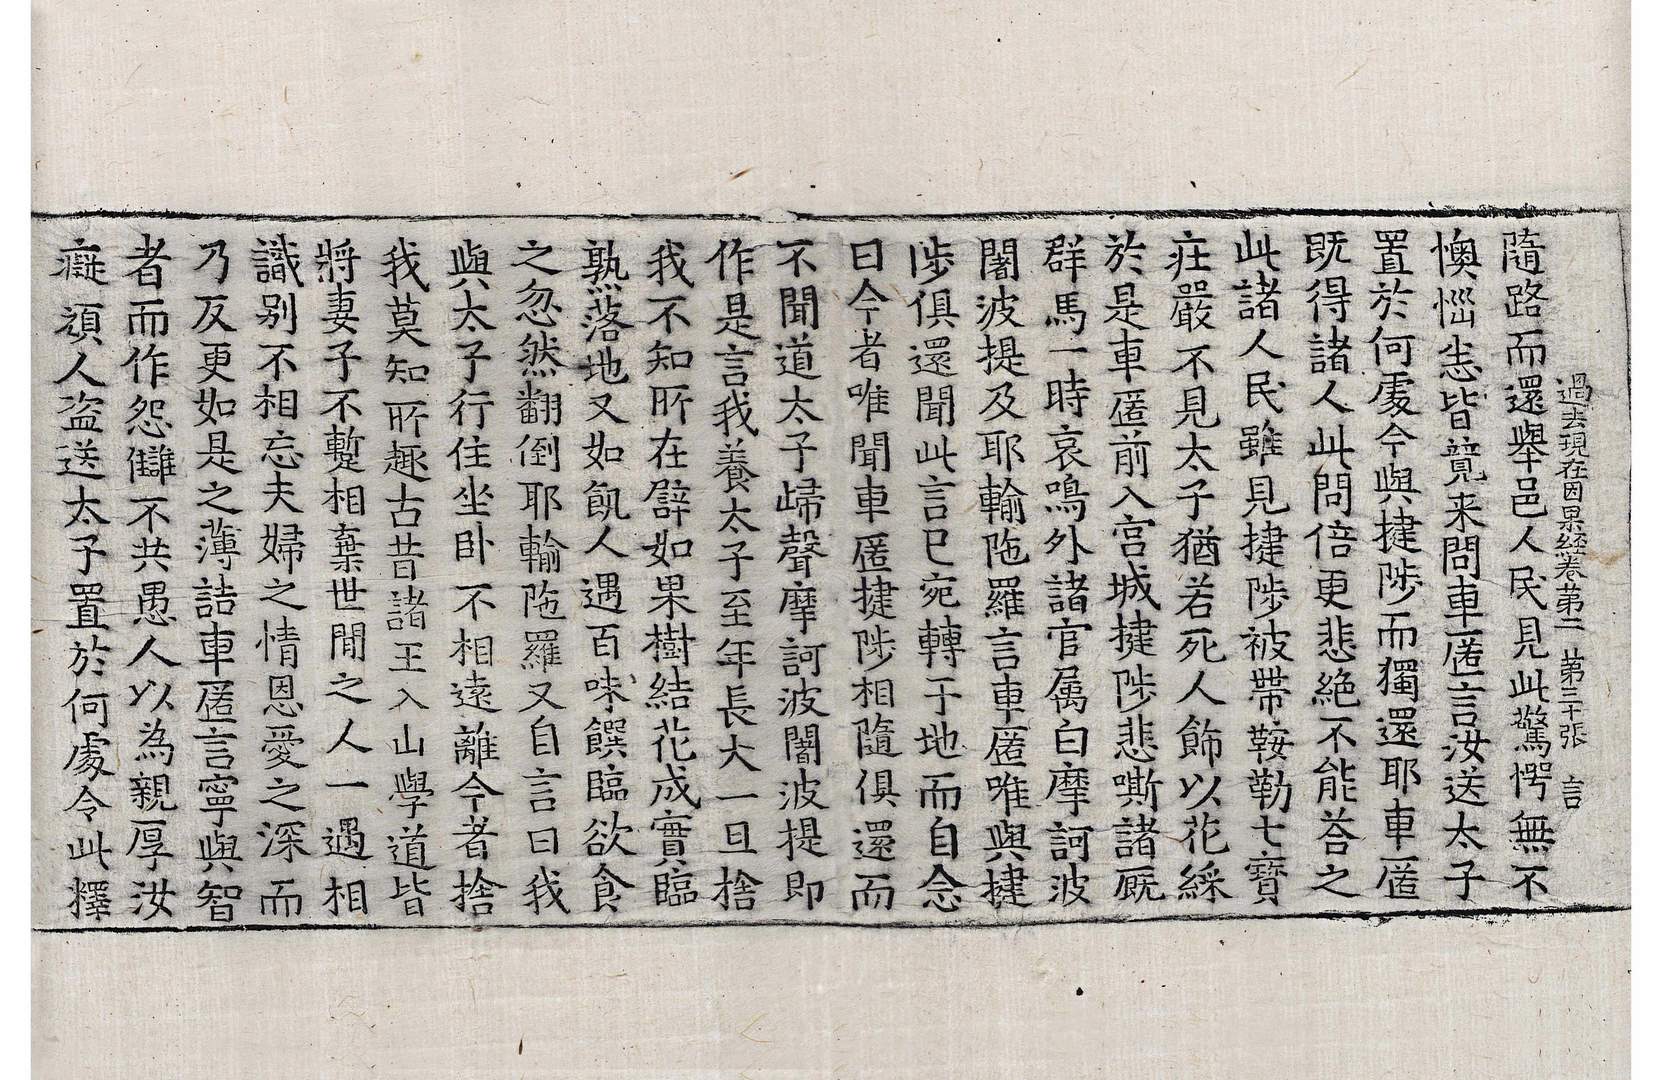 過去現在因果経巻第二　第三十張　言
隨路而還舉邑人民見此驚愕無不
懊惱恚皆競来問車匿言汝送太子
置於何處今與揵陟而獨還耶車匿
既得諸人此問倍更悲絶不能荅之
此諸人民雖見揵陟被帶鞍勒七寶
莊嚴不見太子猶若死人飾以花綵
於是車匿前入宫城揵陟悲嘶諸厩
群馬一時哀鳴外諸官属白摩訶波
闍波提及耶輸陁羅言車匿唯與揵
陟俱還聞此言已宛轉于地而自念
曰今者唯聞車匿揵陟相隨俱還而
不聞道太子歸聲摩訶波闍波提即
作是言我養太子至年長大一旦捨
我不知所在譬如果樹結花成實臨
熟落地又如飢人遇百味饌臨欲食
之忽然翻倒耶輸陁羅又自言曰我
與太子行住坐卧不相遠離今者捨
我莫知所趣古昔諸王入山學道皆
將妻子不蹔相棄世間之人一遇相
識别不相忘夫婦之情恩愛之深而
乃反更如是之薄詰車匿言寧與智
者而作怨讎不共愚人以為親厚汝
癡頑人盗送太子置於何處令此釋